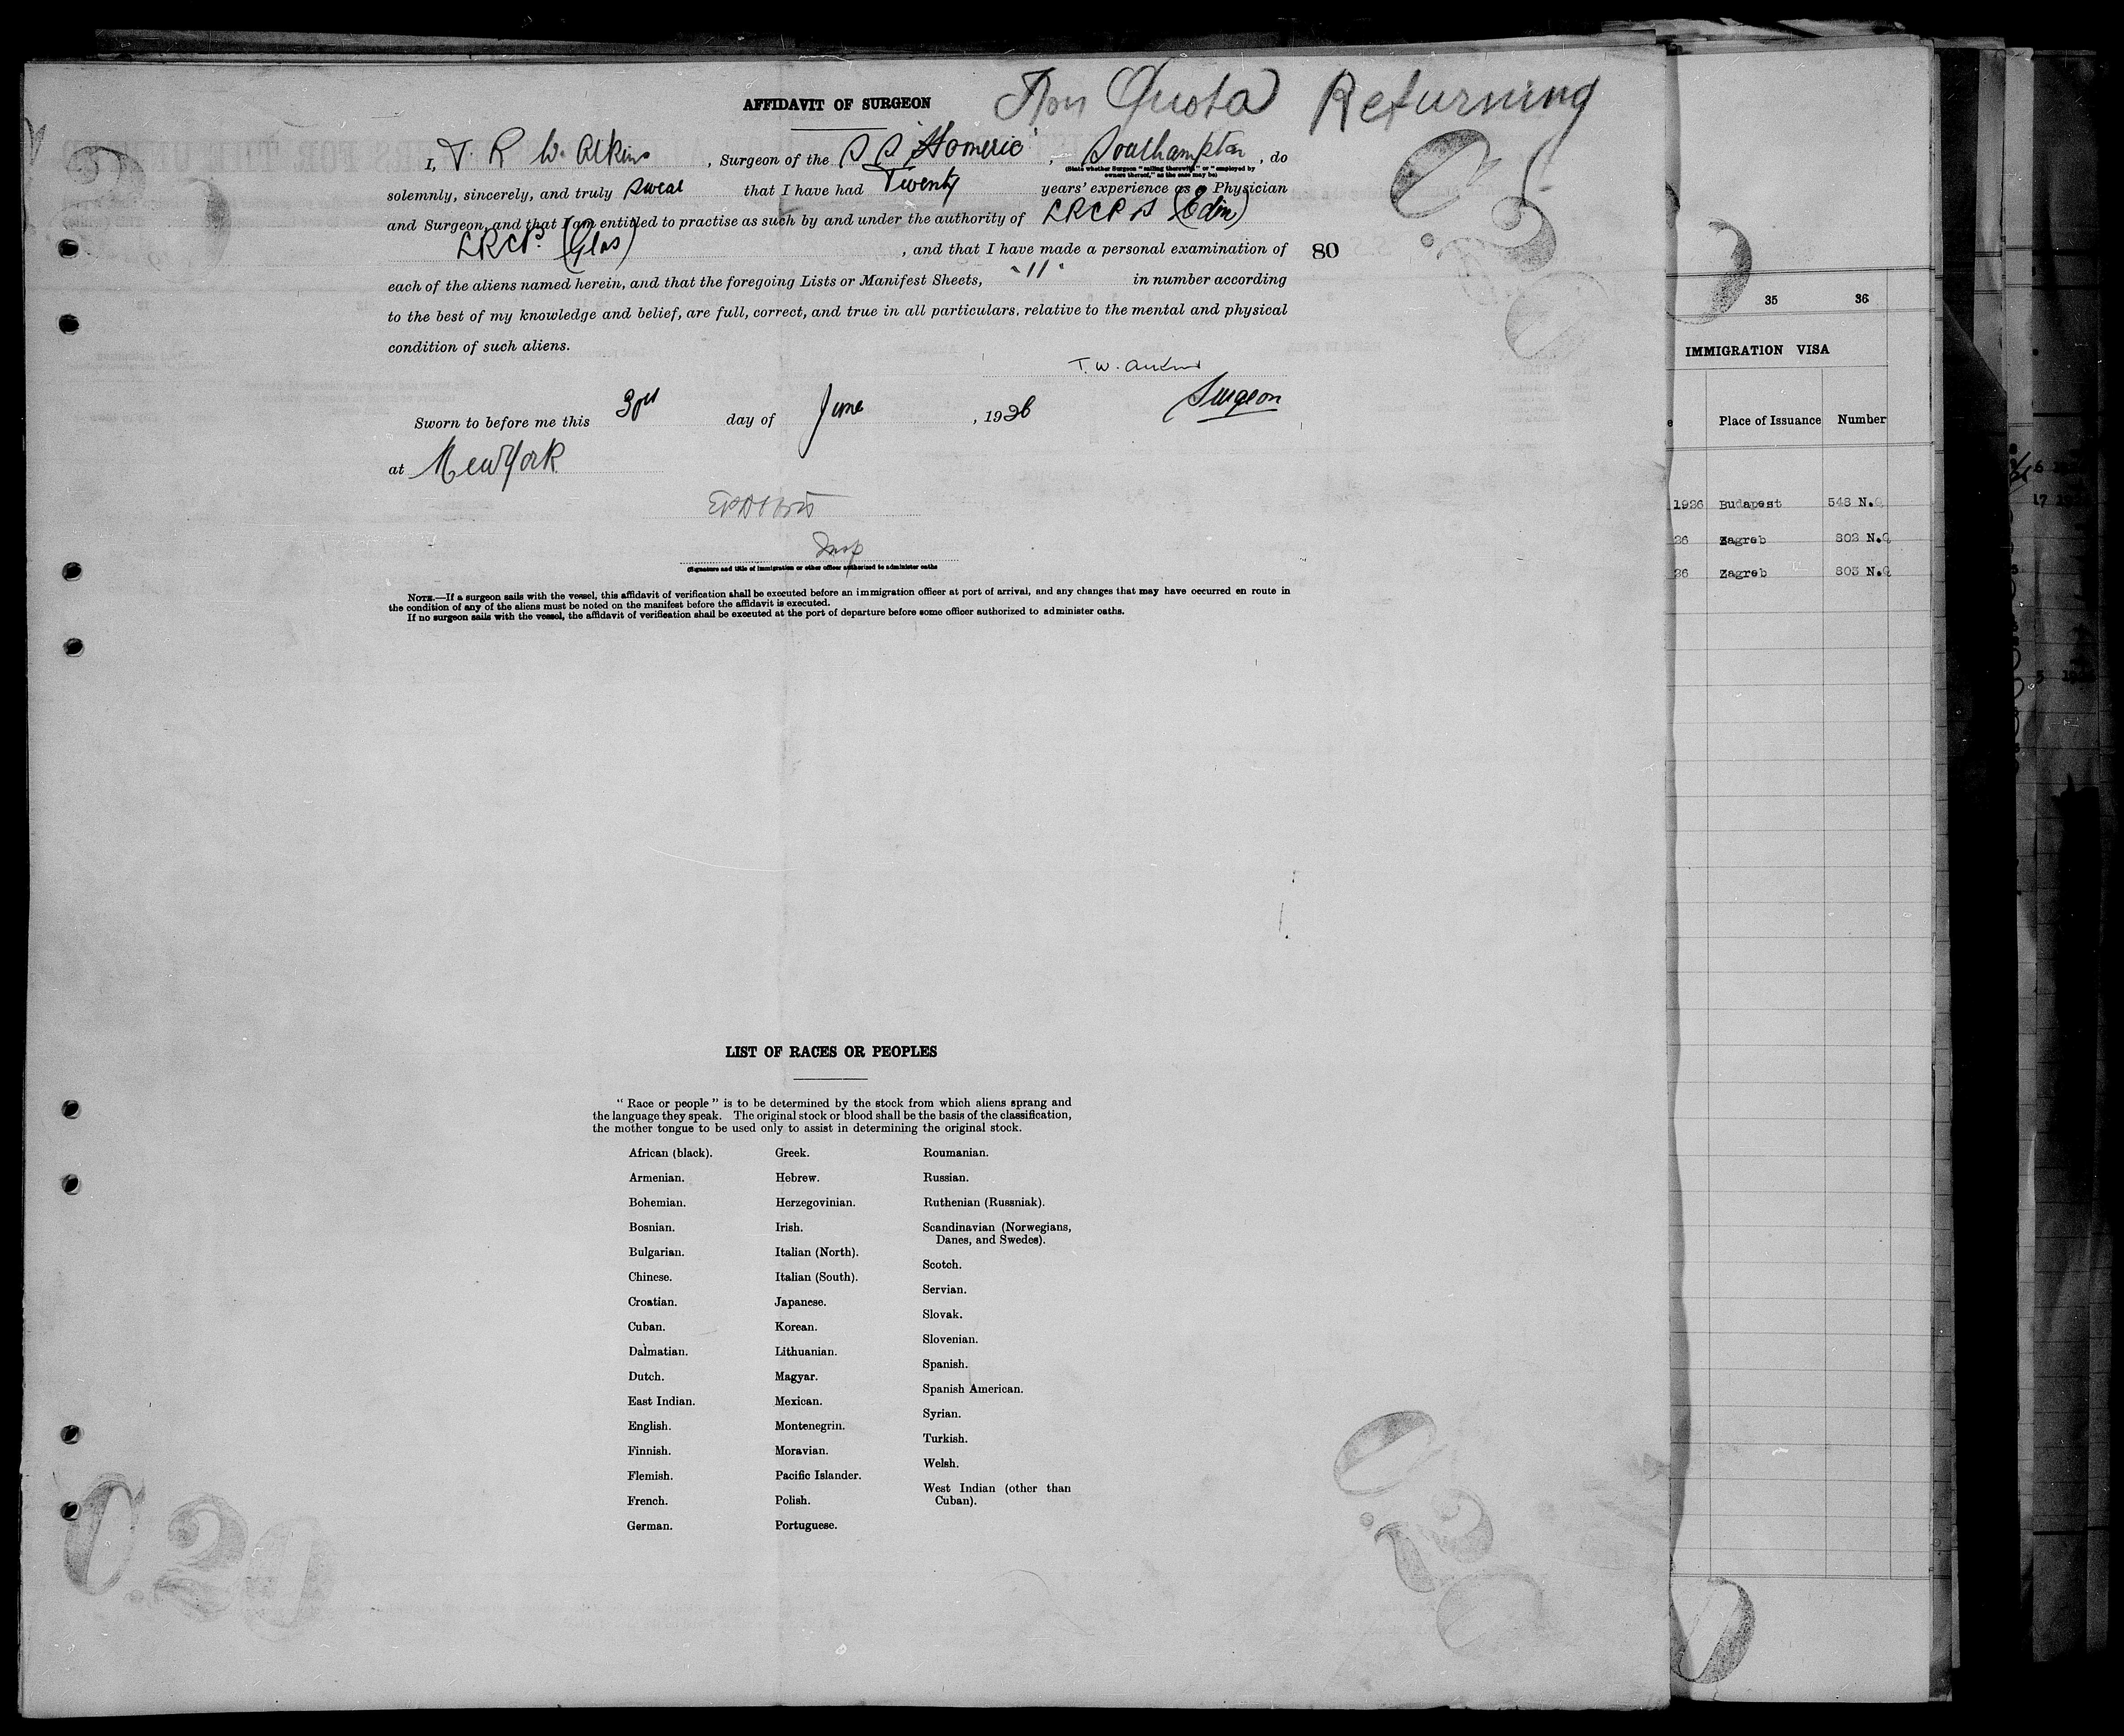 Non Quota Returning
AFFIDAVIT OF SURGEON
I, T. R. W. Atkins, Surgeon of the S S "Homeric", Southampton, do
(State whether Surgeon "sailing therewith" or "employed by
owners thereof," as the case may be)
solemnly, sincerely, and truly swear that I have had Twenty years' experience as a Physician
and Surgeon, and that I am entitled to practise as such by and under the authority of LRCP S (Edin)
LRCPS (Glas), and that I have made a personal examination of 80
each of the aliens named herein, and that the foregoing Lists or Manifest Sheets, "11" in number according
to the best of my knowledge and belief, are full, correct, and true in all particulars, relative to the mental and physical
condition of such aliens.
T. W. Atkins
Surgeon
Sworn to before me this 3rd day of June, 1926
at New York
Insp
(Signature and title of immigration or other officer authorized to administer oaths
NOTE.—If a surgeon sails with the vessel, this affidavit of verification shall be executed before an immigration officer at port of arrival, and any changes that may have occurred en route in
the condition of any of the aliens must be noted on the manifest before the affidavit is executed.
If no surgeon sails with the vessel, the affidavit of verification shall be executed at the port of departure before some officer authorized to administer oaths.
LIST OF RACES OR PEOPLES
"Race or people" is to be determined by the stock from which aliens sprang and
the language they speak. The original stock or blood shall be the basis of the classification,
the mother tongue to be used only to assist in determining the original stock.
African (black).
Armenian.
Bohemian.
Bosnian.
Bulgarian.
Chinese.
Croatian.
Cuban.
Dalmatian.
Dutch.
East Indian.
English.
Finnish.
Flemish.
French.
German.
Greek.
Hebrew.
Herzegovinian.
Irish.
Italian (North).
Italian (South).
Japanese.
Korean.
Lithuanian.
Magyar.
Mexican.
Montenegrin.
Moravian.
Pacific Islander.
Polish.
Portuguese.
Roumanian.
Russian.
Ruthenian (Russniak).
Scandinavian (Norwegians,
Danes, and Swedes).
Scotch.
Servian.
Slovak.
Slovenian.
Spanish.
Spanish American.
Syrian.
Turkish.
Welsh.
West Indian (other than
Cuban).
C.20
C.20
C.20
35 36
IMMIGRATION VISA
Place of Issuance Number
1926 Budapest 548 N.Q
26 Zagreb 802 N.Q
26 Zagreb 803 N.Q